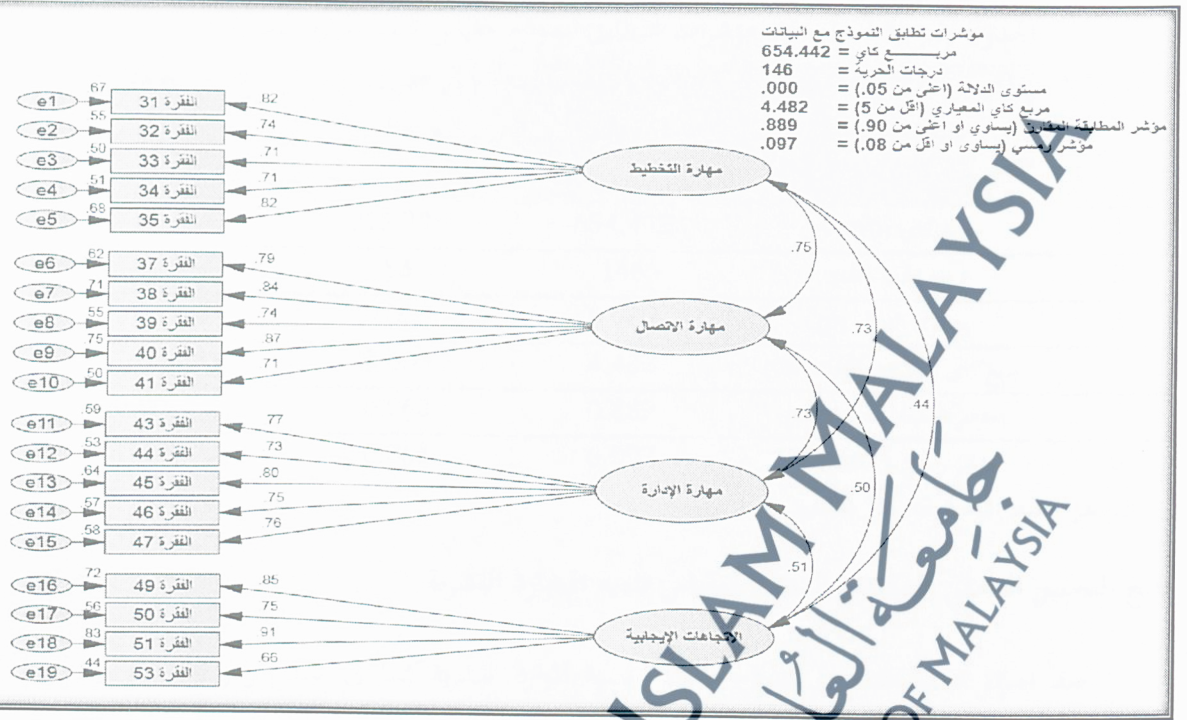 موشرات تطابق النموذج مع البيانات
مربـــــــع كاي = 654.442
درجات الحرية = 146
مستوى الدلالة (اعلى من 05.) = .000
مربع كاي المعياري (اقل من 5) = 4.482
مؤشر المطابقة المقارن (يساوي او اعلى من 90.) = .889
مؤشر رمسي (يساوى او اقل من 08.) = .097
e1 .67 الفقرة 31 .82
e2 .55 الفقرة 32 .74
e3 .50 الفقرة 33 .71
e4 .51 الفقرة 34 .71
e5 .68 الفقرة 35 .82
مهارة التخطيط
e6 .62 الفقرة 37 .79
e7 .71 الفقرة 38 .84
e8 .55 الفقرة 39 .74
e9 .75 الفقرة 40 .87
e10 .50 الفقرة 41 .71
مهارة الاتصال
e11 .59 الفقرة 43 .77
e12 .53 الفقرة 44 .73
e13 .64 الفقرة 45 .80
e14 .57 الفقرة 46 .75
e15 .58 الفقرة 47 .76
مهارة الإدارة
e16 .72 الفقرة 49 .85
e17 .56 الفقرة 50 .75
e18 .83 الفقرة 51 .91
e19 .44 الفقرة 53 .66
الاتجاهات الإيجابية
.75
.73
.44
.73
.50
.51
ISLAM MALAYSIA
جامعة
OF MALAYSIA